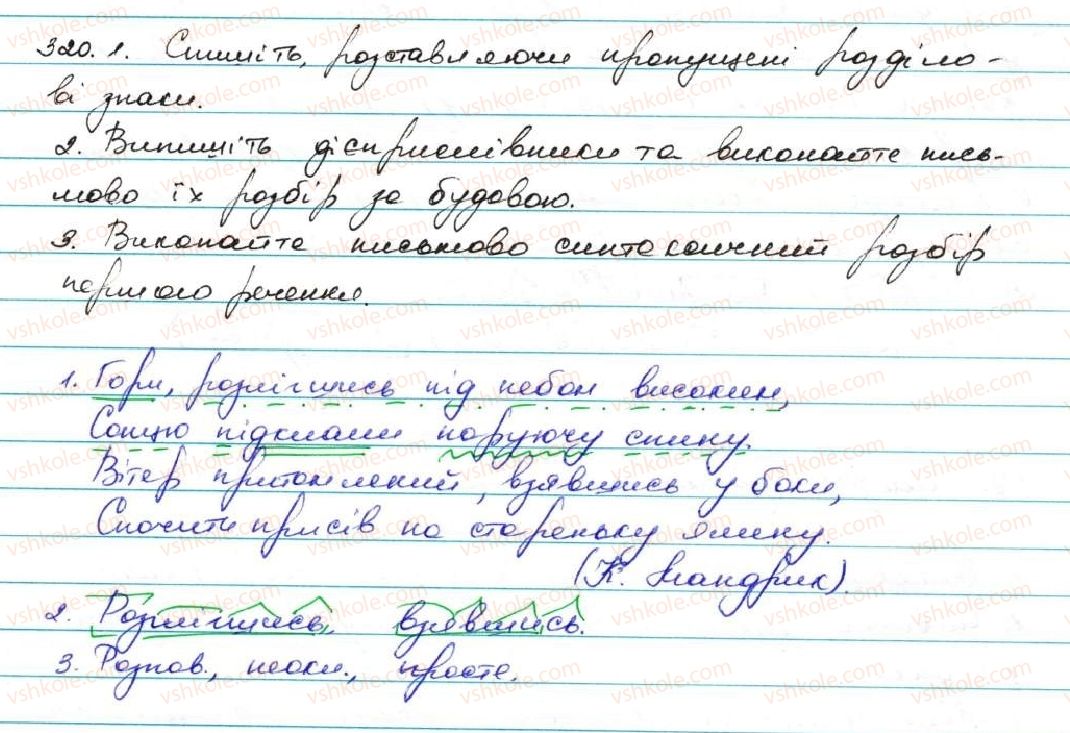 320. 1. Спишіть, розставляючи пропущені розділо-
ві знаки.
2. Випишіть дієприслівники та виконайте пись-
мово їх розбір за будовою.
3. Виконайте письмово синтаксичний розбір
першого речення.
1. Гори, розлігшись під небом високим,
Сонцю підклали поруючу спину.
Вітер притомлений, взявшись у боки,
Спочити присів на стареньку ялину.
(К. Мандрик).
2. Розлігшись, взявшись.
3. Розпов., неокл., просте.